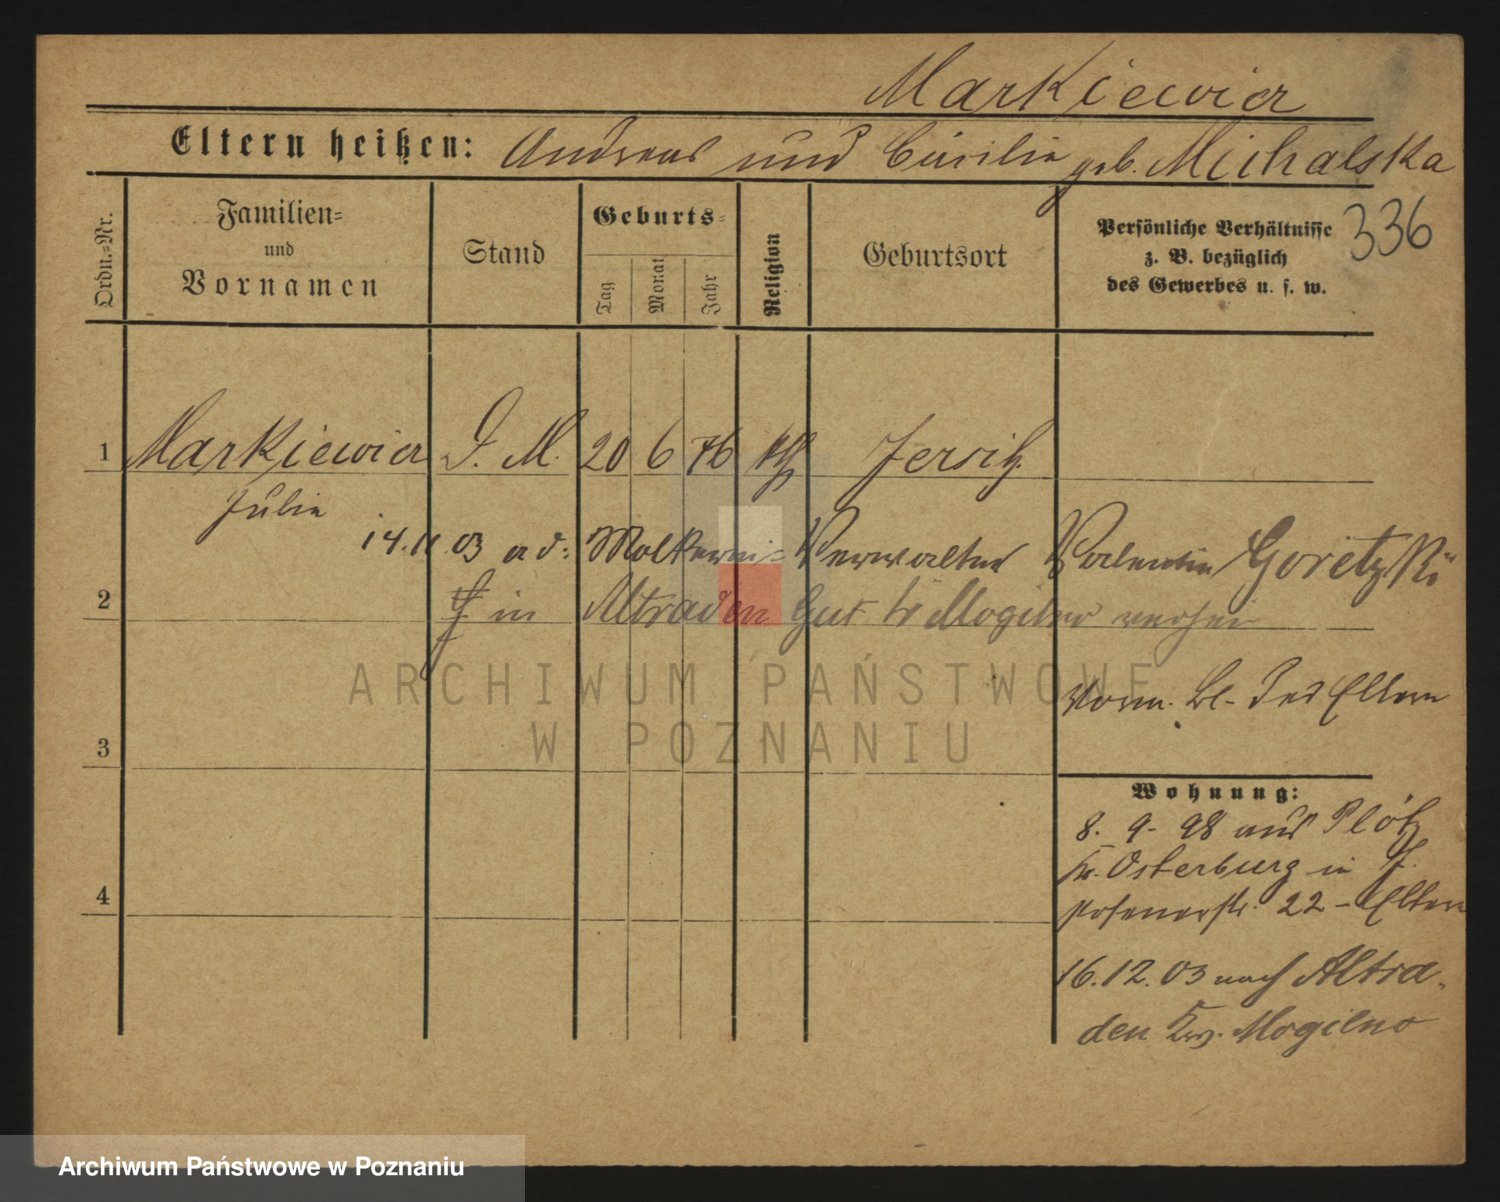 Markiewicz
Eltern heißen: Andreas und Cäcilie geb. Michalska
Ordn.-Nr.
Familien-
und
Vornamen
Stand
Geburts-
Tag
Monat
Jahr
Religion
Geburtsort
Persönliche Verhältnisse
z. B. bezüglich
des Gewerbes u. s. w.
336
1 Markiewicz D. M. 20 6 76 kth Jersitz
Julie
14.11.03 ad: Molkerei-Verwalter Valentin Goretzki
2 in Altraden Gut Kr Mogilno verhei
vorm. Bl. des Eltern
3
Wohnung:
8. 9. 98 aus Plötz
Kr. Osterburg in J.
Posenerstr. 22 - Eltern
4
16.12.03 nach Altra-
den Kr. Mogilno
ARCHIWUM PAŃSTWOWE
W POZNANIU
Archiwum Państwowe w Poznaniu